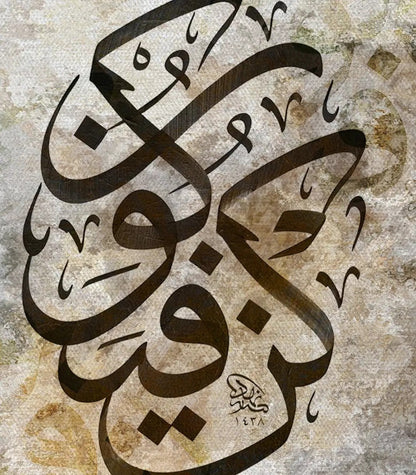 كن فيكون
١٤٣٨